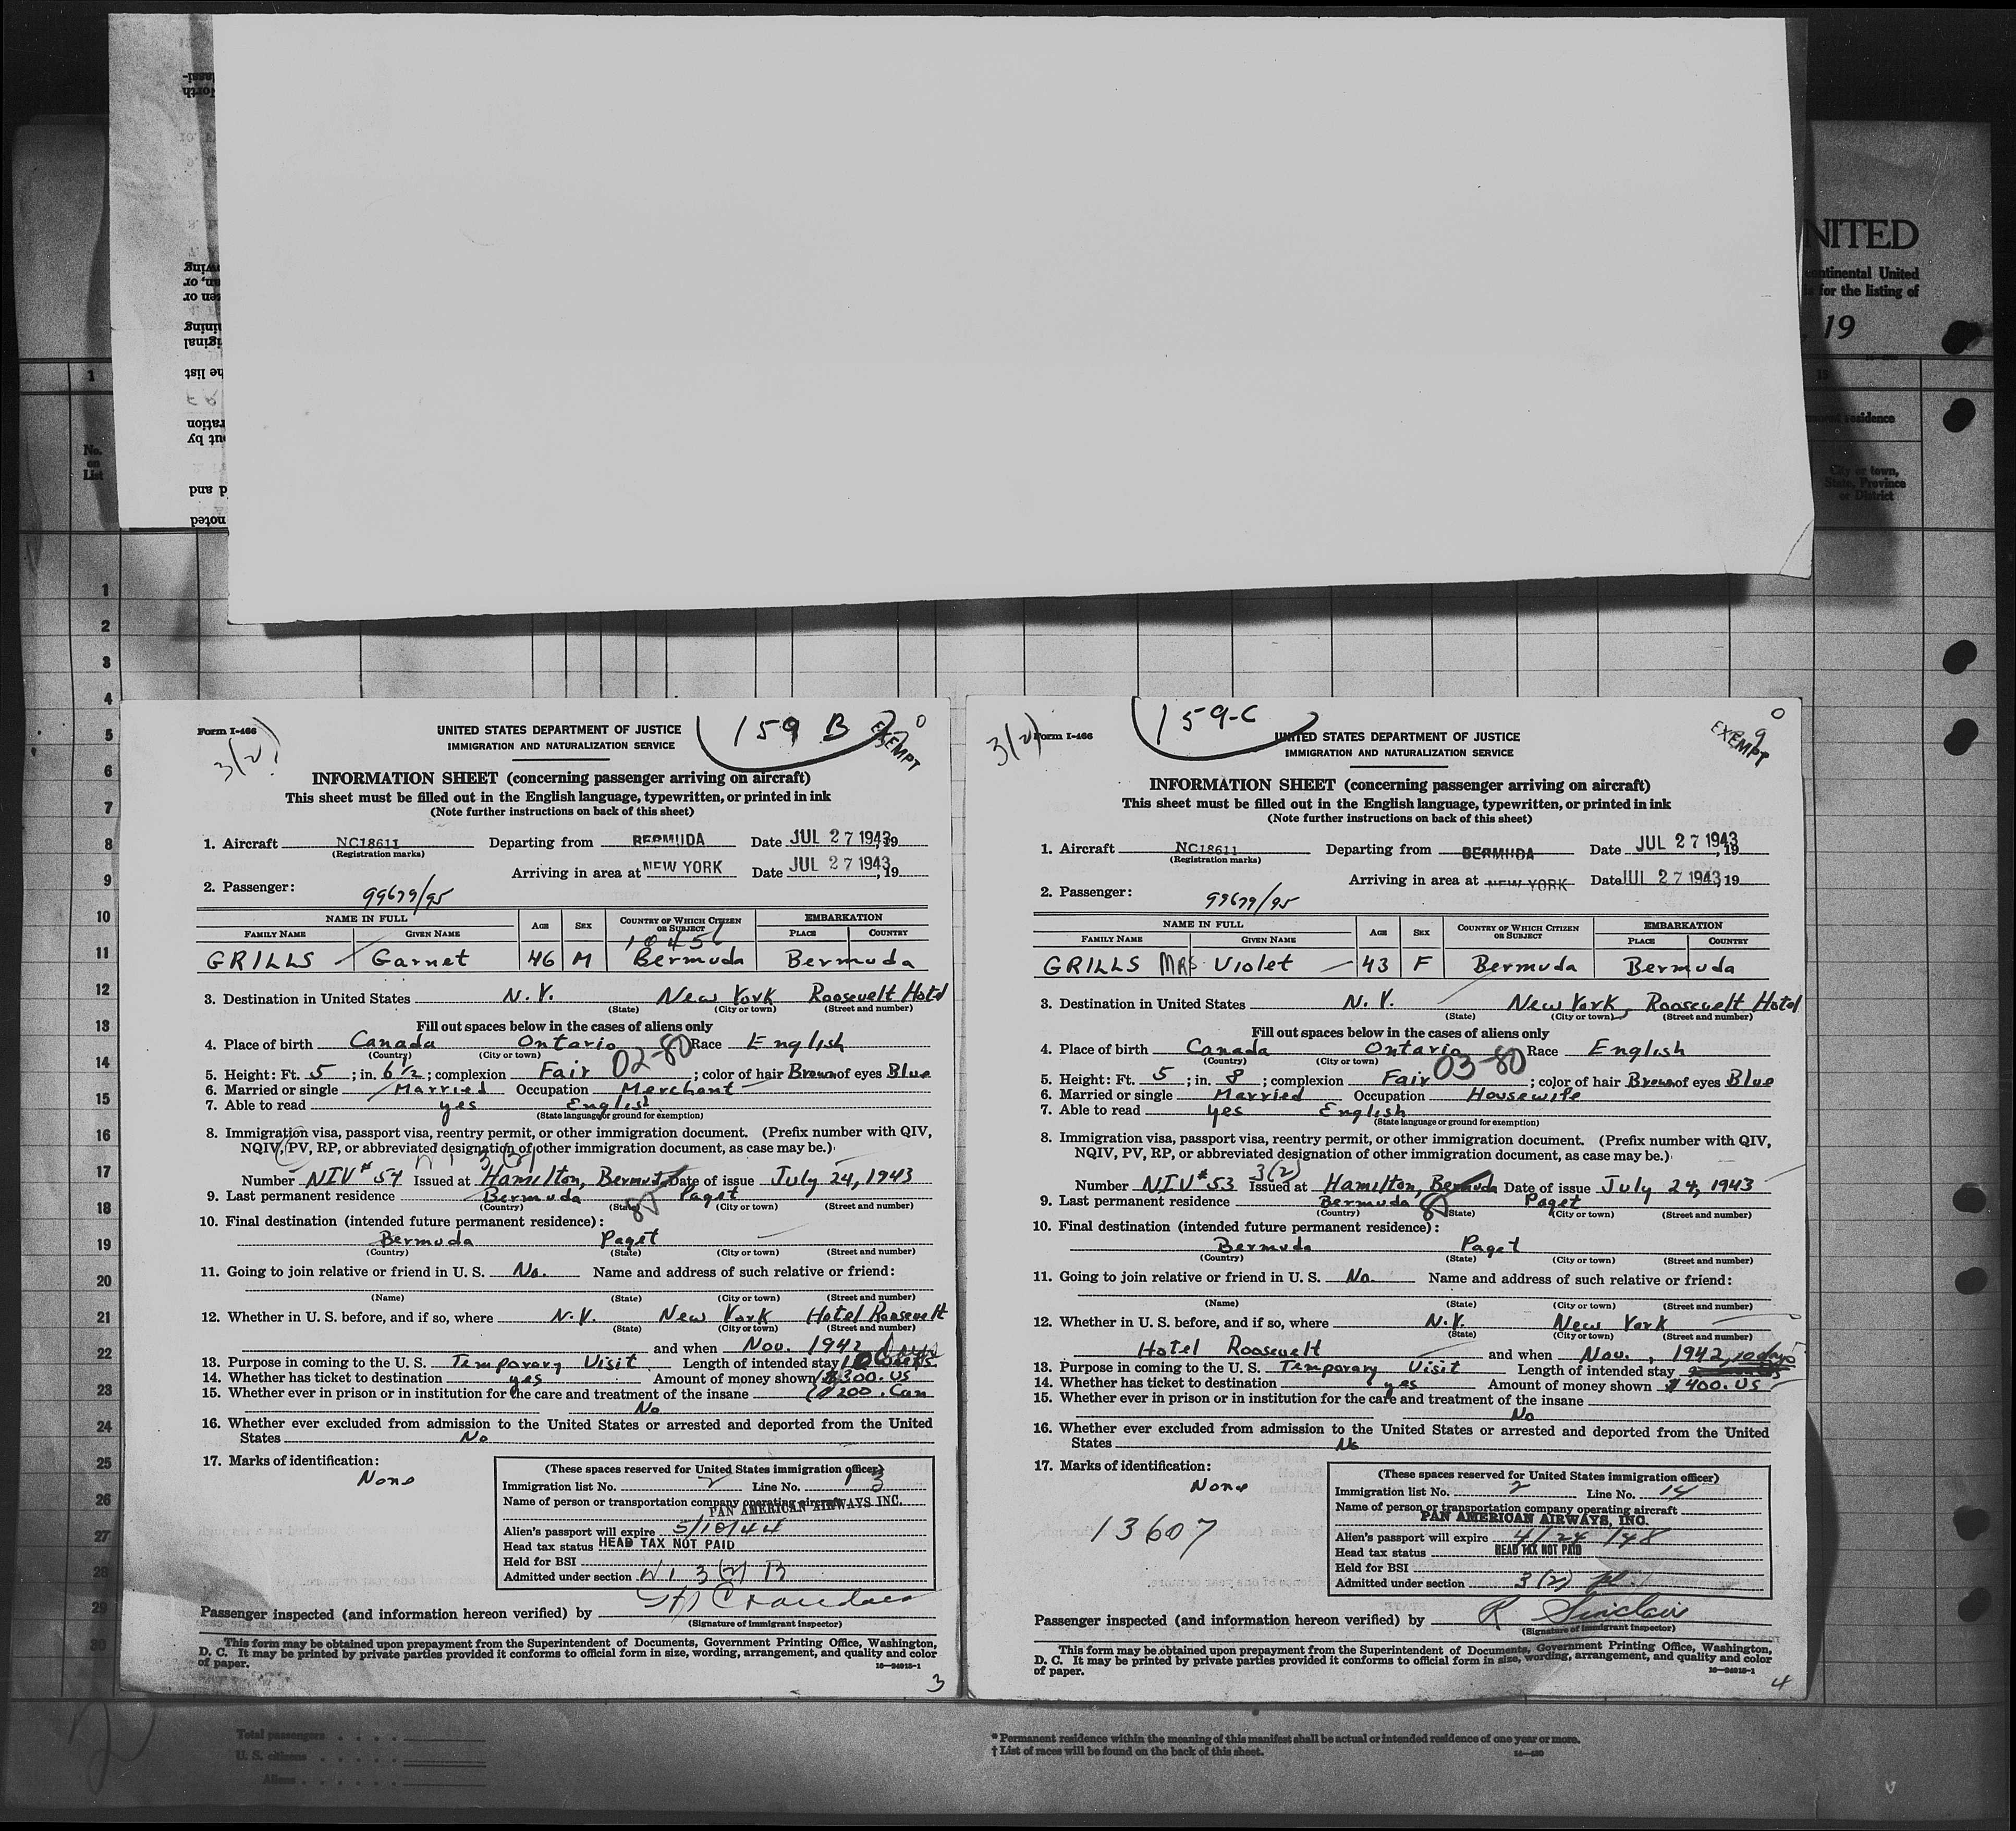 NITED
continental United
for the listing of
, 19
1
15
residence
No.
on
List
City or town,
State, Province
or District
1
2
3
4
5
6
7
8
9
10
11
12
13
14
15
16
17
18
19
20
21
22
23
24
25
26
27
28
29
30
Form I-466
3/(2)
UNITED STATES DEPARTMENT OF JUSTICE
159 B
EXEMPT
IMMIGRATION AND NATURALIZATION SERVICE
INFORMATION SHEET (concerning passenger arriving on aircraft)
This sheet must be filled out in the English language, typewritten, or printed in ink
(Note further instructions on back of this sheet)
1. Aircraft NC18611 Departing from BERMUDA Date JUL 27 1943, 19
(Registration marks)
Arriving in area at NEW YORK Date JUL 27 1943, 19
2. Passenger: 99679/95
NAME IN FULL AGE SEX COUNTRY OF WHICH CITIZEN OR SUBJECT EMBARKATION
FAMILY NAME GIVEN NAME PLACE COUNTRY
GRILLS Garnet 46 M Bermuda Bermuda
3. Destination in United States N.Y. New York Roosevelt Hotel
(State) (City or town) (Street and number)
Fill out spaces below in the cases of aliens only
4. Place of birth Canada Ontario Race English
(Country) (City or town)
02-80
5. Height: Ft. 5; in. 6 1/2; complexion Fair; color of hair Brown of eyes Blue
6. Married or single Married Occupation Merchant
7. Able to read yes English
(State language or ground for exemption)
8. Immigration visa, passport visa, reentry permit, or other immigration document. (Prefix number with QIV,
NQIV, PV, RP, or abbreviated designation of other immigration document, as case may be.)
Number NIV # 54 Issued at Hamilton, Bermuda Date of issue July 24, 1943
9. Last permanent residence Bermuda Paget
(Country) (State) (City or town) (Street and number)
10. Final destination (intended future permanent residence):
Bermuda Paget
(Country) (State) (City or town) (Street and number)
11. Going to join relative or friend in U. S. No. Name and address of such relative or friend:
(Name) (State) (City or town) (Street and number)
12. Whether in U. S. before, and if so, where N.Y. New York Hotel Roosevelt
(State) (City or town) (Street and number)
and when Nov. 1942
13. Purpose in coming to the U. S. Temporary Visit Length of intended stay 10
14. Whether has ticket to destination yes Amount of money shown $300. US
15. Whether ever in prison or in institution for the care and treatment of the insane $200. Can
No
16. Whether ever excluded from admission to the United States or arrested and deported from the United
States No
17. Marks of identification:
None
(These spaces reserved for United States immigration officer)
Immigration list No. 2 Line No. 13
Name of person or transportation company operating aircraft
PAN AMERICAN AIRWAYS INC.
Alien's passport will expire 5/10/44
Head tax status HEAD TAX NOT PAID
Held for BSI
Admitted under section 3(2)
Passenger inspected (and information hereon verified) by
(Signature of immigrant inspector)
This form may be obtained upon prepayment from the Superintendent of Documents, Government Printing Office, Washington,
D. C. It may be printed by private parties provided it conforms to official form in size, wording, arrangement, and quality and color
of paper.
16—24915-1
3
Form I-466
3/(2)
159-C
UNITED STATES DEPARTMENT OF JUSTICE
EXEMPT
9
IMMIGRATION AND NATURALIZATION SERVICE
INFORMATION SHEET (concerning passenger arriving on aircraft)
This sheet must be filled out in the English language, typewritten, or printed in ink
(Note further instructions on back of this sheet)
1. Aircraft NC18611 Departing from BERMUDA Date JUL 27 1943, 19
(Registration marks)
Arriving in area at NEW YORK Date JUL 27 1943, 19
2. Passenger: 99679/95
NAME IN FULL AGE SEX COUNTRY OF WHICH CITIZEN OR SUBJECT EMBARKATION
FAMILY NAME GIVEN NAME PLACE COUNTRY
GRILLS MRS Violet 43 F Bermuda Bermuda
3. Destination in United States N.Y. New York, Roosevelt Hotel
(State) (City or town) (Street and number)
Fill out spaces below in the cases of aliens only
4. Place of birth Canada Ontario Race English
(Country) (City or town)
03-80
5. Height: Ft. 5; in. 8; complexion Fair; color of hair Brown of eyes Blue
6. Married or single Married Occupation Housewife
7. Able to read yes English
(State language or ground for exemption)
8. Immigration visa, passport visa, reentry permit, or other immigration document. (Prefix number with QIV,
NQIV, PV, RP, or abbreviated designation of other immigration document, as case may be.)
3(2)
Number NIV # 53 Issued at Hamilton, Bermuda Date of issue July 24, 1943
9. Last permanent residence Bermuda Paget
(Country) (State) (City or town) (Street and number)
10. Final destination (intended future permanent residence):
Bermuda Paget
(Country) (State) (City or town) (Street and number)
11. Going to join relative or friend in U. S. No. Name and address of such relative or friend:
(Name) (State) (City or town) (Street and number)
12. Whether in U. S. before, and if so, where N.Y. New York
(State) (City or town) (Street and number)
Hotel Roosevelt and when Nov., 1942
13. Purpose in coming to the U. S. Temporary Visit Length of intended stay 10 days
14. Whether has ticket to destination yes Amount of money shown $400. US
15. Whether ever in prison or in institution for the care and treatment of the insane
No
16. Whether ever excluded from admission to the United States or arrested and deported from the United
States No
17. Marks of identification:
None
13607
(These spaces reserved for United States immigration officer)
Immigration list No. 2 Line No. 14
Name of person or transportation company operating aircraft
PAN AMERICAN AIRWAYS, INC.
Alien's passport will expire 4/24/48
Head tax status HEAD TAX NOT PAID
Held for BSI
Admitted under section 3(2)
Passenger inspected (and information hereon verified) by R Sinclair
(Signature of immigrant inspector)
This form may be obtained upon prepayment from the Superintendent of Documents, Government Printing Office, Washington,
D. C. It may be printed by private parties provided it conforms to official form in size, wording, arrangement, and quality and color
of paper.
16—24915-1
4
Total passengers
U. S. citizens
Aliens
* Permanent residence within the meaning of this manifest shall be actual or intended residence of one year or more.
† List of races will be found on the back of this sheet.